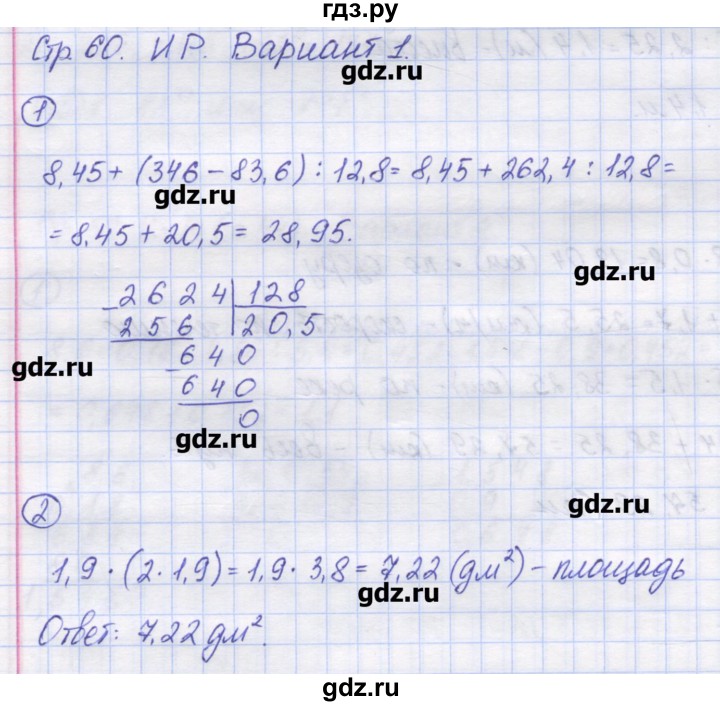 гдз.ру
Стр. 60. ИР. Вариант 1.
gdz.ru
1
8,45 + (346 - 83,6) : 12,8 = 8,45 + 262,4 : 12,8 =
gdz.ru
= 8,45 + 20,5 = 28,95.
gdz.ru
2624 | 128
- 256 | 20,5
gdz.ru
- 640
640
0
gdz.ru
2
gdz.ru
1,9 · (2 · 1,9) = 1,9 · 3,8 = 7,22 (дм²) - площадь
gdz.ru
Ответ: 7,22 дм².
gdz.ru